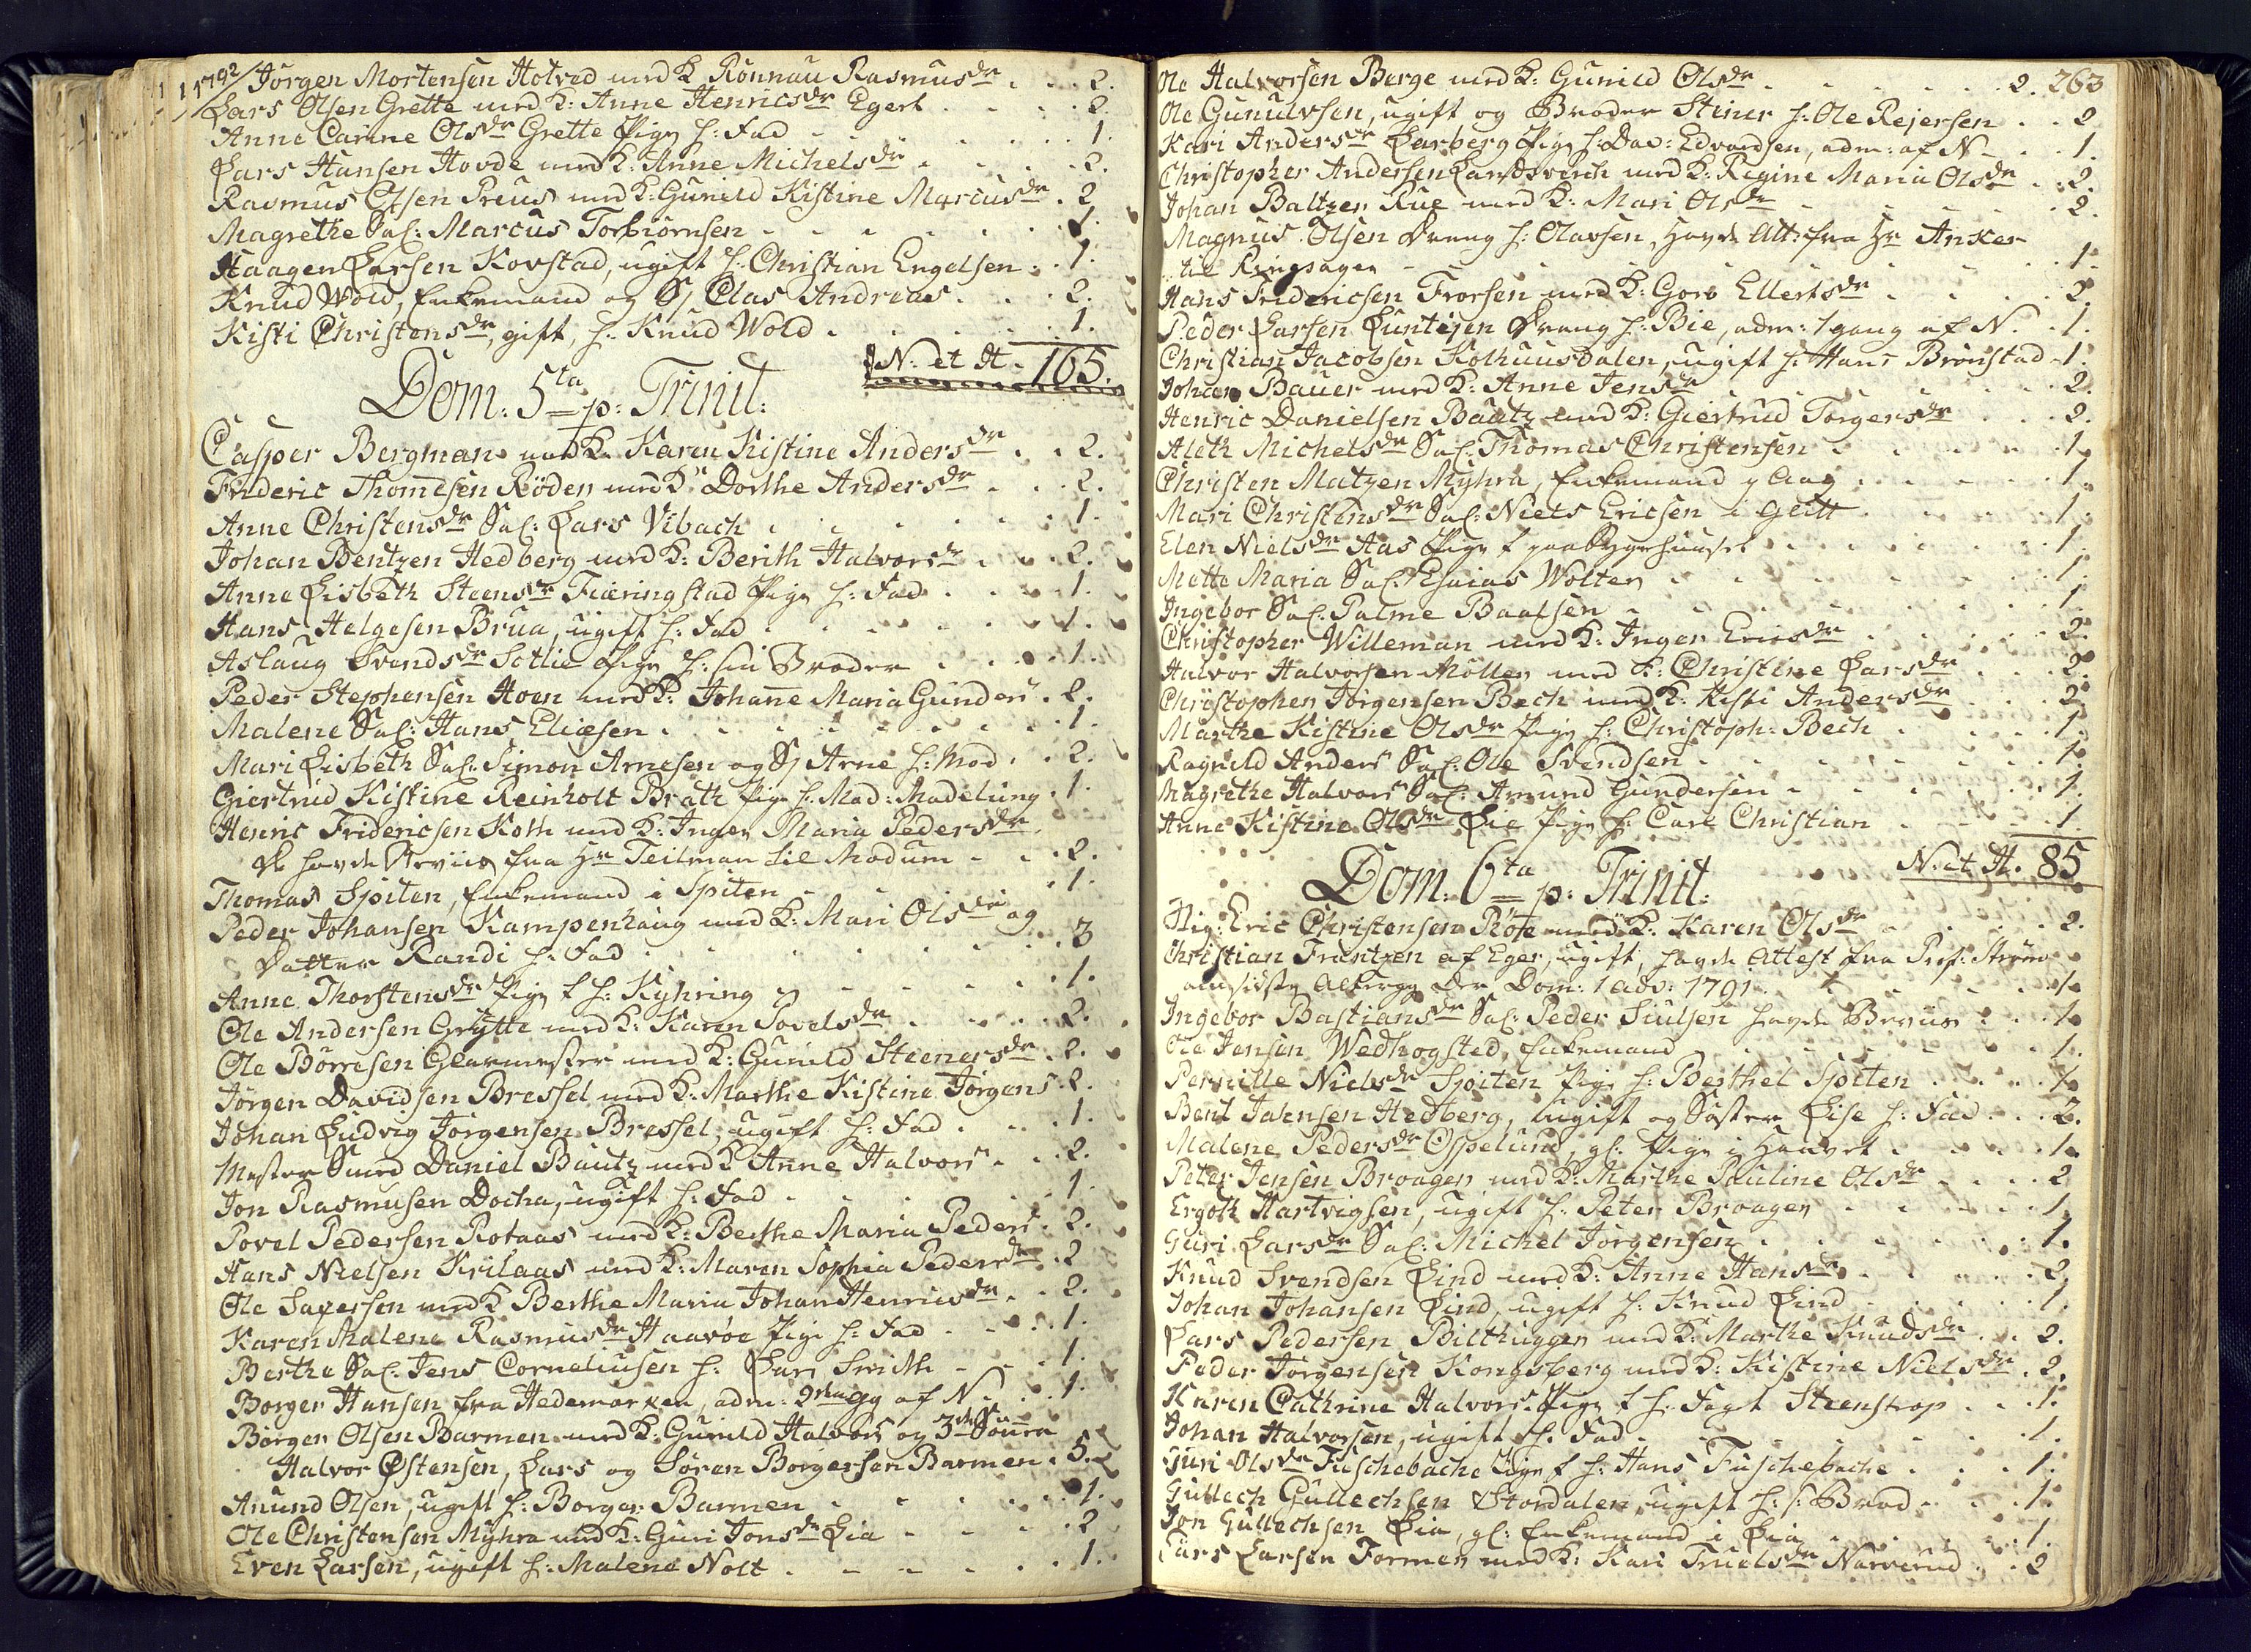 1792 Jörgen Mortensen Hotved med K Rönnau Rasmusdr . . 2.
Lars Olsen Grette med K: Anne Henricsdr Egert . . . 2.
Anne Carine Olsdr Grette Pige h: Fad . . . 1.
Lars Hansen Hovde med K: Anne Michelsdr . . . 2.
Rasmus Olsen Preus med K: Gunild Kistine Marcusdr . 2
Magrethe Sal: Marcus Torbiörnsen . . . 1.
Haagen Larsen Kovstad, ugift h: Christian Engelsen . . 1.
Knud Wold, Enkemand og Sj Clas Andreas . . . 2.
Kisti Christensdr, gift, h: Knud Wold . . . 1.
N. et H. 165.
Dom: 5ta p: Trinit:
Casper Bergman med K. Karen Kistine Andersdr . . 2.
Frideric Thomesen Röden med K: Dorthe Andersdr . . . 2.
Anne Christensdr Sal: Lars Vibach . . . 1.
Johan Bentzen Hedberg med K: Berith Halvorsdr . . . 2.
Anne Lisbeth Steensdr Fiæringstad Pige h: Fad . . . 1.
Hans Helgesen Brua, ugift h: Fad . . . 1.
Aslaug Svendsdr Sotlie Pige h: sin Broder . . . 1.
Peder Stephensen Hoen med K: Johane Maria Gunders . 2.
Malene Sal: Hans Eliæsen . . . 1.
Mari Lisbeth Sal: Simon Arnesen og Sj Arne h: Mod . . 2.
Giertrud Kistine Reinholt Brath Pige h: Mad: Madelung . 1.
Henric Fridericsen Koth med K: Inger Maria Pedersdr
de havde Beviis fra Hr Teilman til Modum . . . 2.
Thomas Spiten, Enkemand i Spiten . . . 1.
Peder Johansen Kampenhaug med K: Mari Olsdr og
Datter Randi h: Fad . . . 3
Anne Thorstensdr Pige f h: Kyhring . . . 1.
Ole Andersen Grÿtte med K: Karen Povelsdr . . . 2.
Ole Börresen Glarmester med K: Gunild Steenersdr . 2.
Jörgen Davidsen Bressel med K: Marthe Kistine Jörgens . 2.
Johan Ludvig Jörgensen Bressel, ugift h: Fad . . . 1.
Mester Smed Daniel Bautz med K Anne Halvors . . . 2.
Jon Rasmusen Docha, ugift h: Fad . . . 1.
Povel Pedersen Rotaas med K: Berthe Maria Peders . 2.
Hans Nielsen Krilaas med K: Maren Sophia Pedersdr . 2
Ole Sagersen med K Berthe Maria Johan Henricsdr . . 2.
Karen Malene Rasmusdr Haavöe Pige h: Fad . . . 1.
Berthe Sal: Jens Corneliusen h: Lars Smith . . . 1.
Borger Hansen fra Hedemarken, adm: 2den Gg af N . . . 1.
Börger Olsen Barmen med K: Gunild Halvors og 3de Sönner
Halvor Østensen, Lars og Sören Börgersen Barmen . 5.
Anund Olsen, ugift h: Borger Barmen . . . 1.
Ole Christensen Mÿhra med K: Guri Jonsdr Lia . . . 2
Even Larsen, ugift h: Malene Nolt . . . 1.
Ole Halvorsen Berge med K: Gunild Olsdr . . . 2. 263
Ole Gunulvsen, ugift og Broder Steiner h: Ole Rejersen . . 2
Kari Andersdr Larberg Pige h: Dav: Edvardsen, adm: af N . . 1.
Christopher Andersen Landsverch med K: Regine Maria Olsdr . 2.
Johan Baltzer Rue med K: Mari Olsdr . . . 2.
Magnus Olsen Dreng h: Olavsen, havde Att: fra Hr Anker
til Ringsager . . . 1.
Hans Fridericsen Frorsen med K: Goro Ellertsdr . . . 2.
Peder Larsen Luntejen Dreng h: Bie, adm: 1 gang af N. . 1.
Christian Jacobsen Kolhuusdalen, ugift h: Hans Brönstad . 1.
Johan Bauer med K: Anne Jensdr . . . 2.
Henric Danielsen Bautz med K: Giertrud Torgersdr . . . 2.
Aleth Michelsdr Sal: Thomas Christensen . . . 1.
Christen Matzen Mÿhra, Enkemand . . . 1.
Mari Christensdr Sal: Niels Ericsen . . . 1.
Elen Nielsdr Aas Pige f paa Sygehuuset . . . 1.
Mette Maria Sal: Esaias Wolter . . . 1.
Ingebor Sal: Palme Baalsen . . . 1
Christopher Willeman med K: Inger Ericsdr . . . 2.
Halvor Halvorsen Möller med K: Christine Larsdr . . . 2.
Christopher Jörgensen Bech med K: Kisti Andersdr . . . 2
Marthe Kistine Olsdr Pige h: Christoph: Bech . . . 1.
Ragnild Anders Sal: Ole Svendsen . . . 1.
Magrethe Halvors Sal: Amund Gundersen . . . 1.
Anne Kistine Olsdr Lie Pige h: Carl Christian . . . 1.
N. et H. 85
Dom: 6ta p: Trinit:
Stig: Eric Christensen Röte med K: Karen Olsdr . . . 2.
Christian Frantzen af Eger, ugift, havde Attest fra Prof: Ström
om sidste Alterg: der Dom: 1 adv: 1791 . . . 1.
Ingebor Bastiansdr Sal: Peder Siulsen havde Beviis . . . 1.
Ole Jensen Wedhogsted, Enkemand . . . 1.
Pernille Nielsdr Spiten Pige h: Berthel Spiten . . . 1.
Bent Johnsen Hedberg, ugift og Söster Lise h: Fad . . . 2.
Malene Pedersdr Ospelund, gl: Pige i Huuset . . . 1.
Peter Jensen Broager med K: Marthe Pauline Olsdr . . . 2
Ergoth Hartvigsen, ugift h: Peter Broager . . . 1.
Guri Larsdr Sal: Michel Jörgensen . . . 1.
Knud Svendsen Lind med K: Anne Hansdr . . . 2.
Johan Johansen Lind, ugift h: Knud Lind . . . 1.
Lars Pedersen Bilthugger med K: Marthe Knudsdr . . 2.
Peder Jörgensen Kongsberg med K: Kistine Nielsdr . 2.
Karen Cathrine Halvors: Pige f h: Fogt Steenstrop . . . 1.
Johan Halvorsen, ugift h: Fad . . . 1.
Guri Olsdr Fuschebache Pige f h: Hans Fuschebache . . . 1.
Gullech Gullechsen Stordalen, ugift h: s: Brod . . . 1.
Jon Gullechsen Lia, gl: Enkemand i Lia . . . 1.
Lars Larsen Former med K: Kari Truelsdr Narverud . . 2